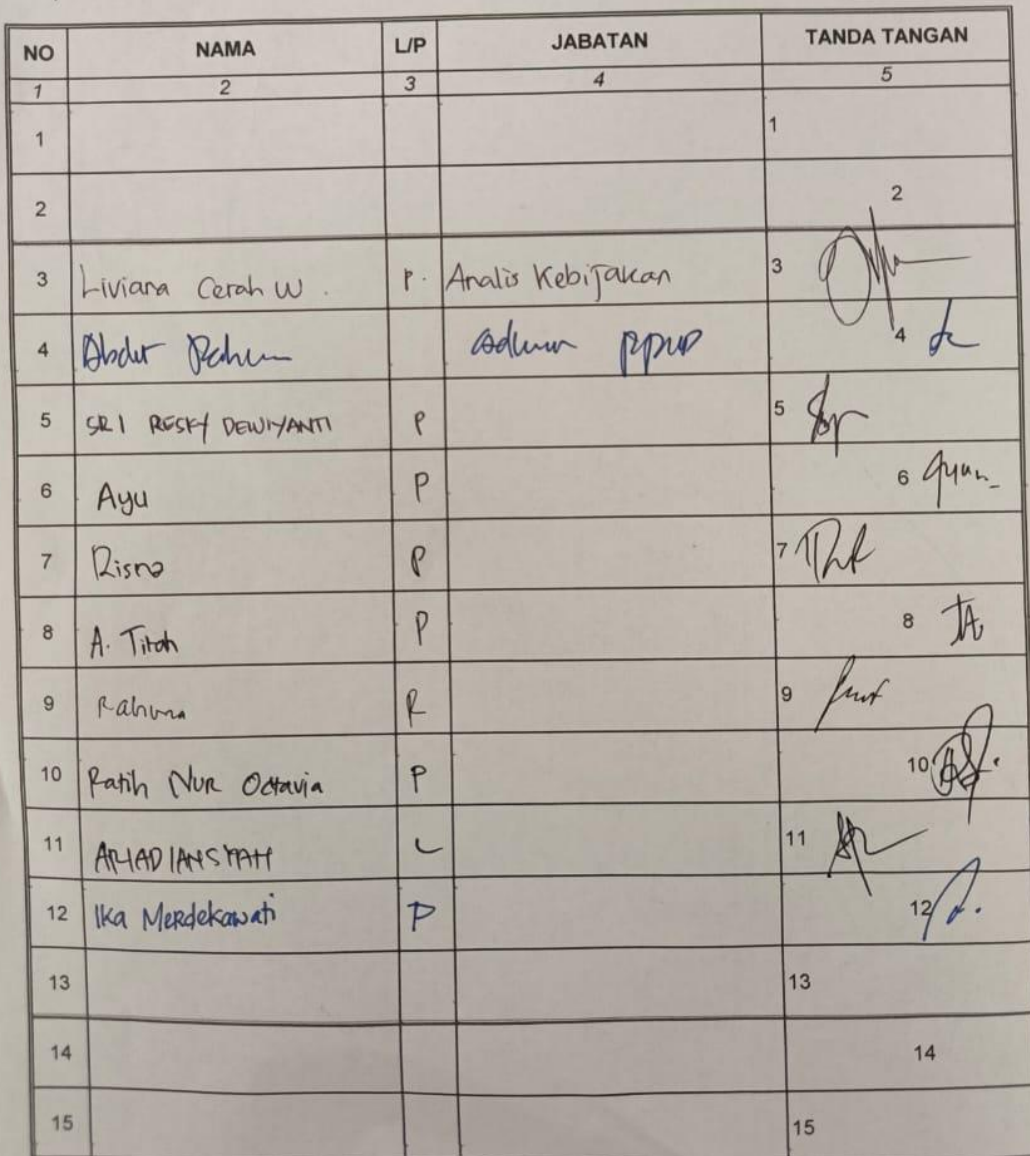 NO NAMA L/P JABATAN TANDA TANGAN
1 2 3 4 5
1 1
2 2
3 Liviana Cerah W. P. Analis Kebijakan 3
4 Abdul 4
5 SRI RESKY DEWIYANTI P 5
6 Ayu P 6
7 Risna P 7
8 A. Titah P 8
9 R 9
10 Ratih NUR Octavia P 10
11 L 11
12 Ika Merdekawati P 12
13 13
14 14
15 15